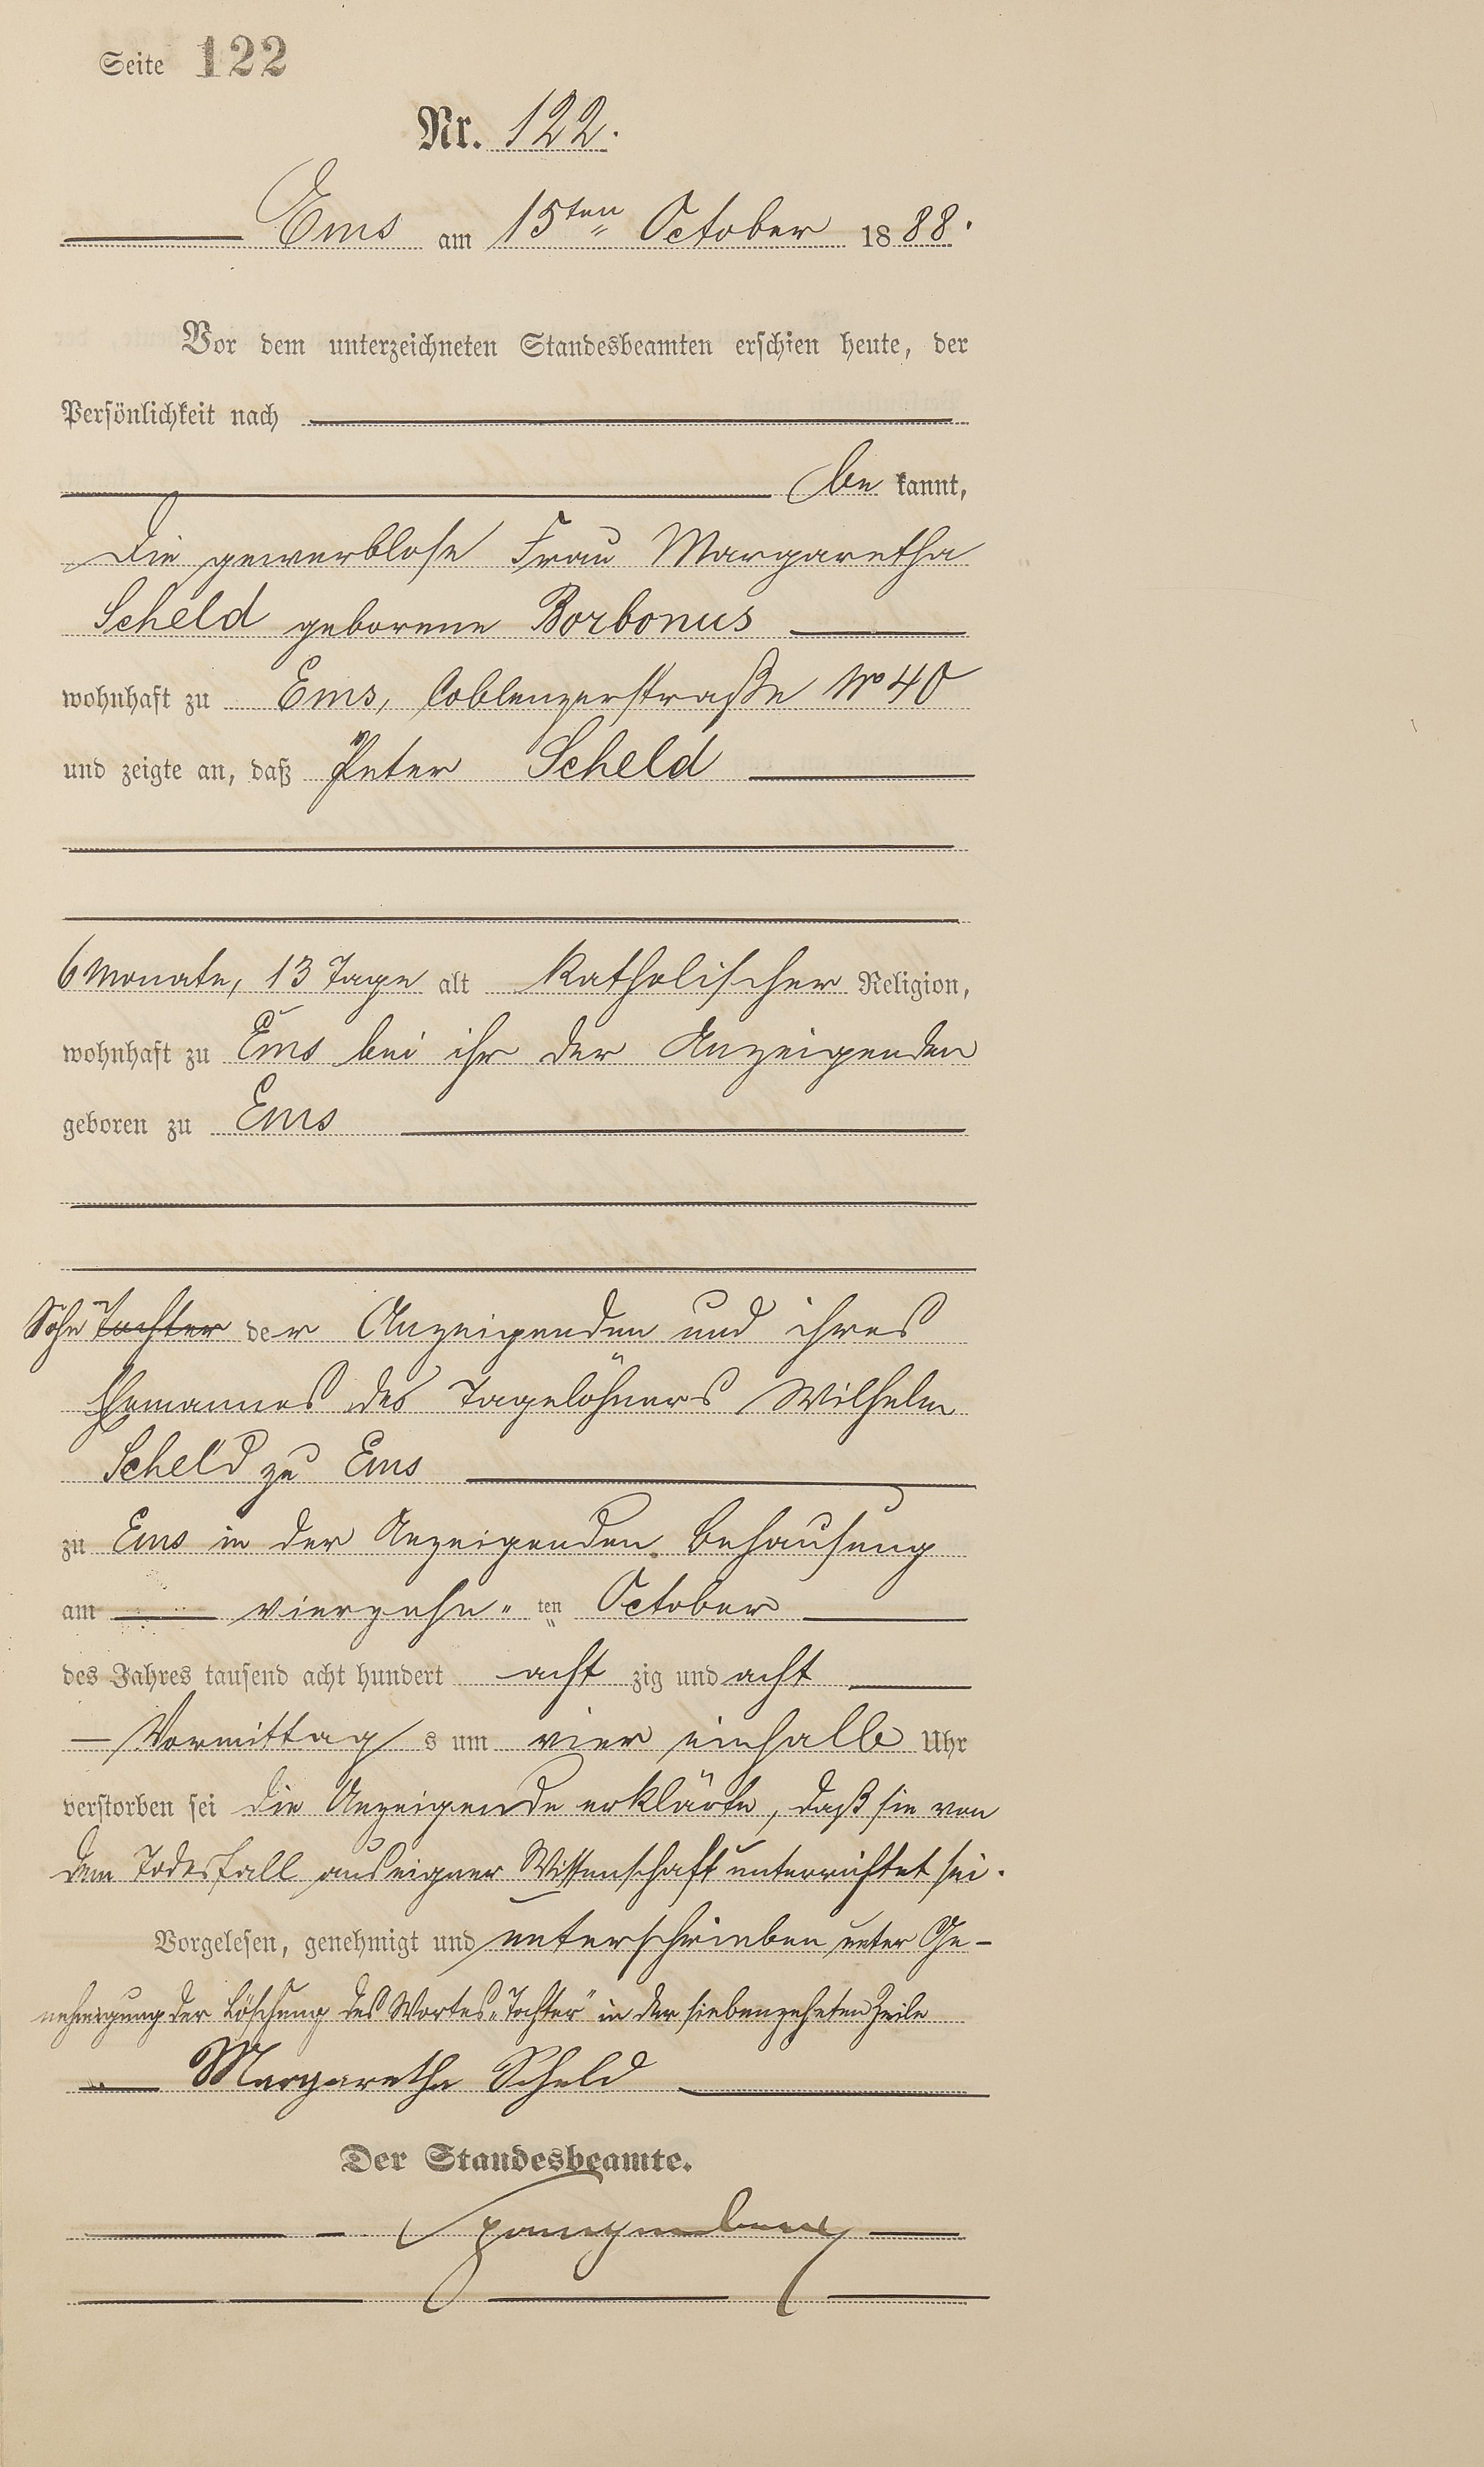 Seite 122
Nr. 122.
Ems am 15ten October 1888.
Vor dem unterzeichneten Standesbeamten erschien heute, der
Persönlichkeit nach
bekannt,
die gewerblose Frau Margaretha
Scheld geborene Borbonus
wohnhaft zu Ems, Coblenzerstraße No 40
und zeigte an, daß Peter Scheld
6 Monate, 13 Tage alt katholischer Religion,
wohnhaft zu Ems bei ihr der Anzeigenden
geboren zu Ems
Sohn Tochter der Anzeigenden und ihres
Ehemannes des Tagelöhners Wilhelm
Scheld zu Ems
zu Ems in der Anzeigenden Behausung
am vierzehn ten October
des Jahres tausend acht hundert acht zig und acht
Vormittag s um vier einhalb Uhr
verstorben sei die Anzeigende erklärte, daß sie von
dem Todesfall aus eigner Wissenschaft unterrichtet sei.
Vorgelesen, genehmigt und unterschrieben unter Ge-
nehmigung der Löschung des Wortes „Tochter" in der siebenzehnten Zeile
Margaretha Scheld
Der Standesbeamte.